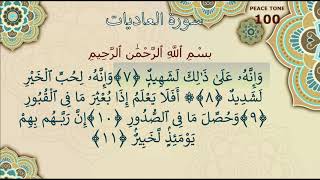 PEACE TONE
100
سورة العاديات
بِسْمِ اللَّهِ الرَّحْمَٰنِ الرَّحِيمِ
وَإِنَّهُۥ عَلَىٰ ذَٰلِكَ لَشَهِيدٌ ﴿٧﴾ وَإِنَّهُۥ لِحُبِّ ٱلْخَيْرِ
لَشَدِيدٌ ﴿٨﴾ ۞ أَفَلَا يَعْلَمُ إِذَا بُعْثِرَ مَا فِى ٱلْقُبُورِ
﴿٩﴾ وَحُصِّلَ مَا فِى ٱلصُّدُورِ ﴿١٠﴾ إِنَّ رَبَّهُم بِهِمْ
يَوْمَئِذٍ لَّخَبِيرٌۢ ﴿١١﴾